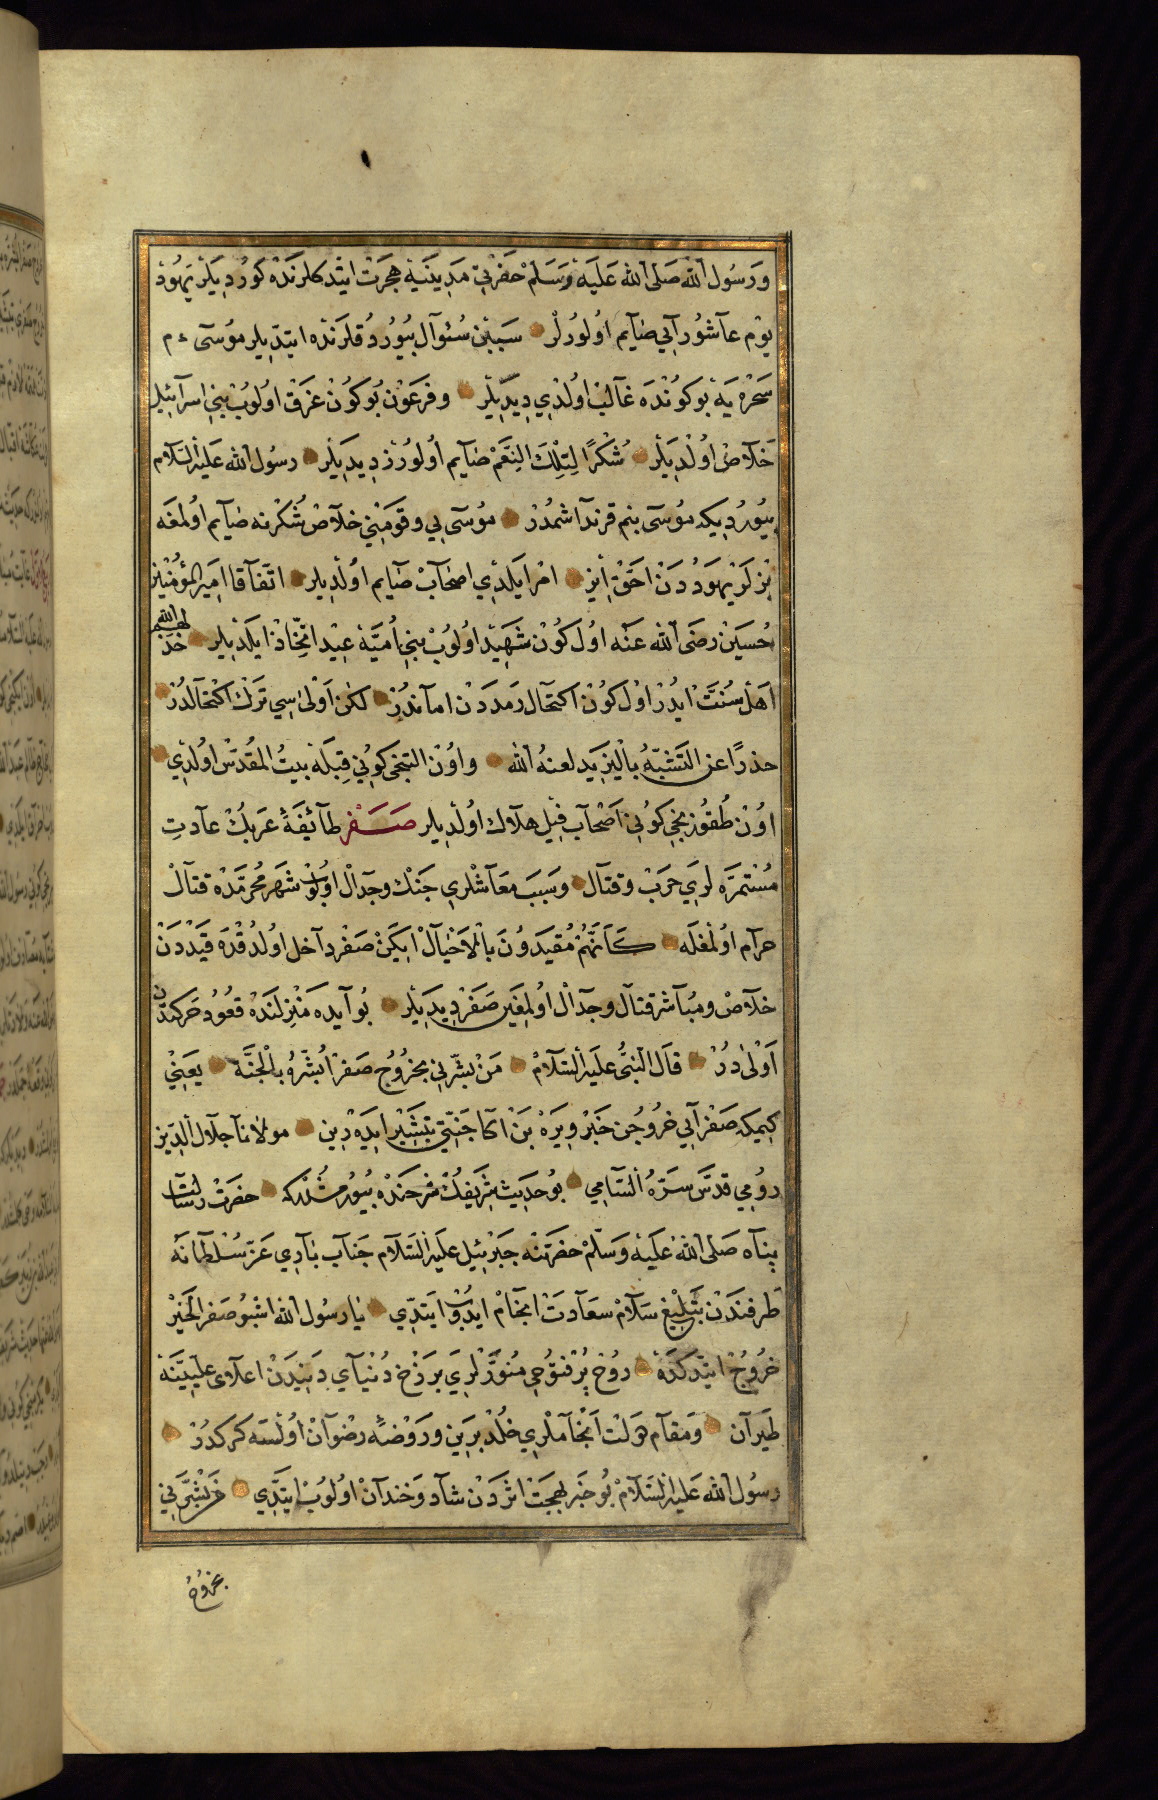 ورسول الله صلى الله عليه وسلم حضرتي مدينيه هجرت ايتدكلرنده كورديلر يهود
يوم عآشورآيي صآيم اولورلر سببن سئوآل بيوردقلرنده ايتديلر موسى ءم
سحره يه بوكونده غآلب اولدي ديديلر وفرعون بوكون غرق اولوب بني اسرآئيل
خلآص اولديلر شكرًا لتلك النعم صآيم اولورز ديديلر رسول الله عليه السلام
بيورديكه موسى بنم قرندآشمدر موسى يي وقومني خلآص شكرنه صآيم اولمغه
بز لر يهوددن احق ايز امر ايلدي اصحآب صآيم اولديلر اتفآقا امير المؤمنين
حسين رضى الله عنه اول كون شهيد اولوب بني اميه عيد اتخاذ ايلديلر
اهل سنت ايدر اول كون اكتحال رمددن اماندر لكن اولى سي ترك اكتحالدر
حذرًا عن التشبه باليزيد لعنه الله واون التنجى كوني قبله بيت المقدس اولدي
اون طقوزنجي كوني اصحآب فيل هلآك اولديلر صفر طآئفۀ عربك عآدت
مستمره لري حرب وقتآل وسبب معآشلري جنك وجدآل اولوب شهر محرمده قتآل
حرآم اولمغله كأنهم مقيدون بالاخيآل ايكن صفر دآخل اولدقده قيددن
خلآص ومبآشر قتآل وجدآل اولمغين صفر ديديلر بو آيده منزلنده قعود حركتدن
اولى در قال النبى عليه السلآم من بشرني بخروج صفر ابشره بالجنة يعني
كيمكه صفر آيي خروجن خبر ويره بن اكا جنتي تبشير ايده دين مولانآ جلآل الدين
رومي قدس سره السآمي بو حديث شريفك شرحنده بيورمشدركه حضرت رسالت
پنآه صلى الله عليه وسلم حضرتنه جبرئيل عليه السلآم جنآب بآري عز سلطانه
طرفندن تبليغ سلآم سعآدت انجآم ايدوب ايتدي يا رسول الله اشبو صفر الخير
خروج ايتدكده روح پرفتوحي منورلري برزخ دنيآي دنيدن اعلآى عليينه
طيرآن ومقآم دولت انجآملري خلد برين وروضۀ رضوآن اولسه كركدر
رسول الله عليه السلآم بو خبر بهجت اثردن شآد وخندآن اولوب ايتدي من بشرني
بخروج